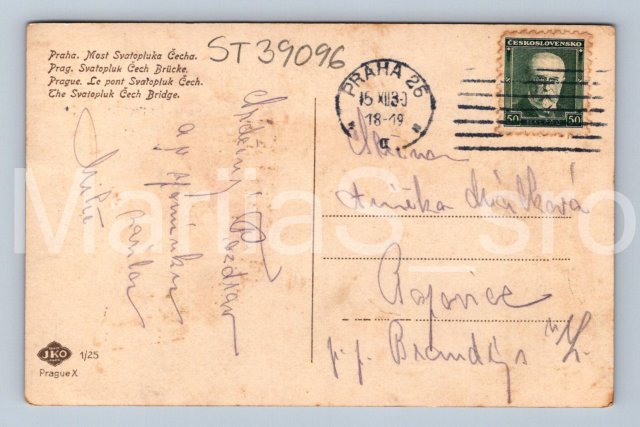 Praha. Most Svatopluka Čecha.
Prag. Svatopluk Čech Brücke.
Prague. Le pont Svatopluk Čech.
The Svatopluk Čech Bridge.
ST39096
PRAHA 26
15 XII 30
18-19
α
ČESKOSLOVENSKO
50 50
Srdečný Pozdrav
a
Slečna
Dvořáková
p.p. Brandýs n/L.
JKO
1/25
Prague X
MarijaS_sro